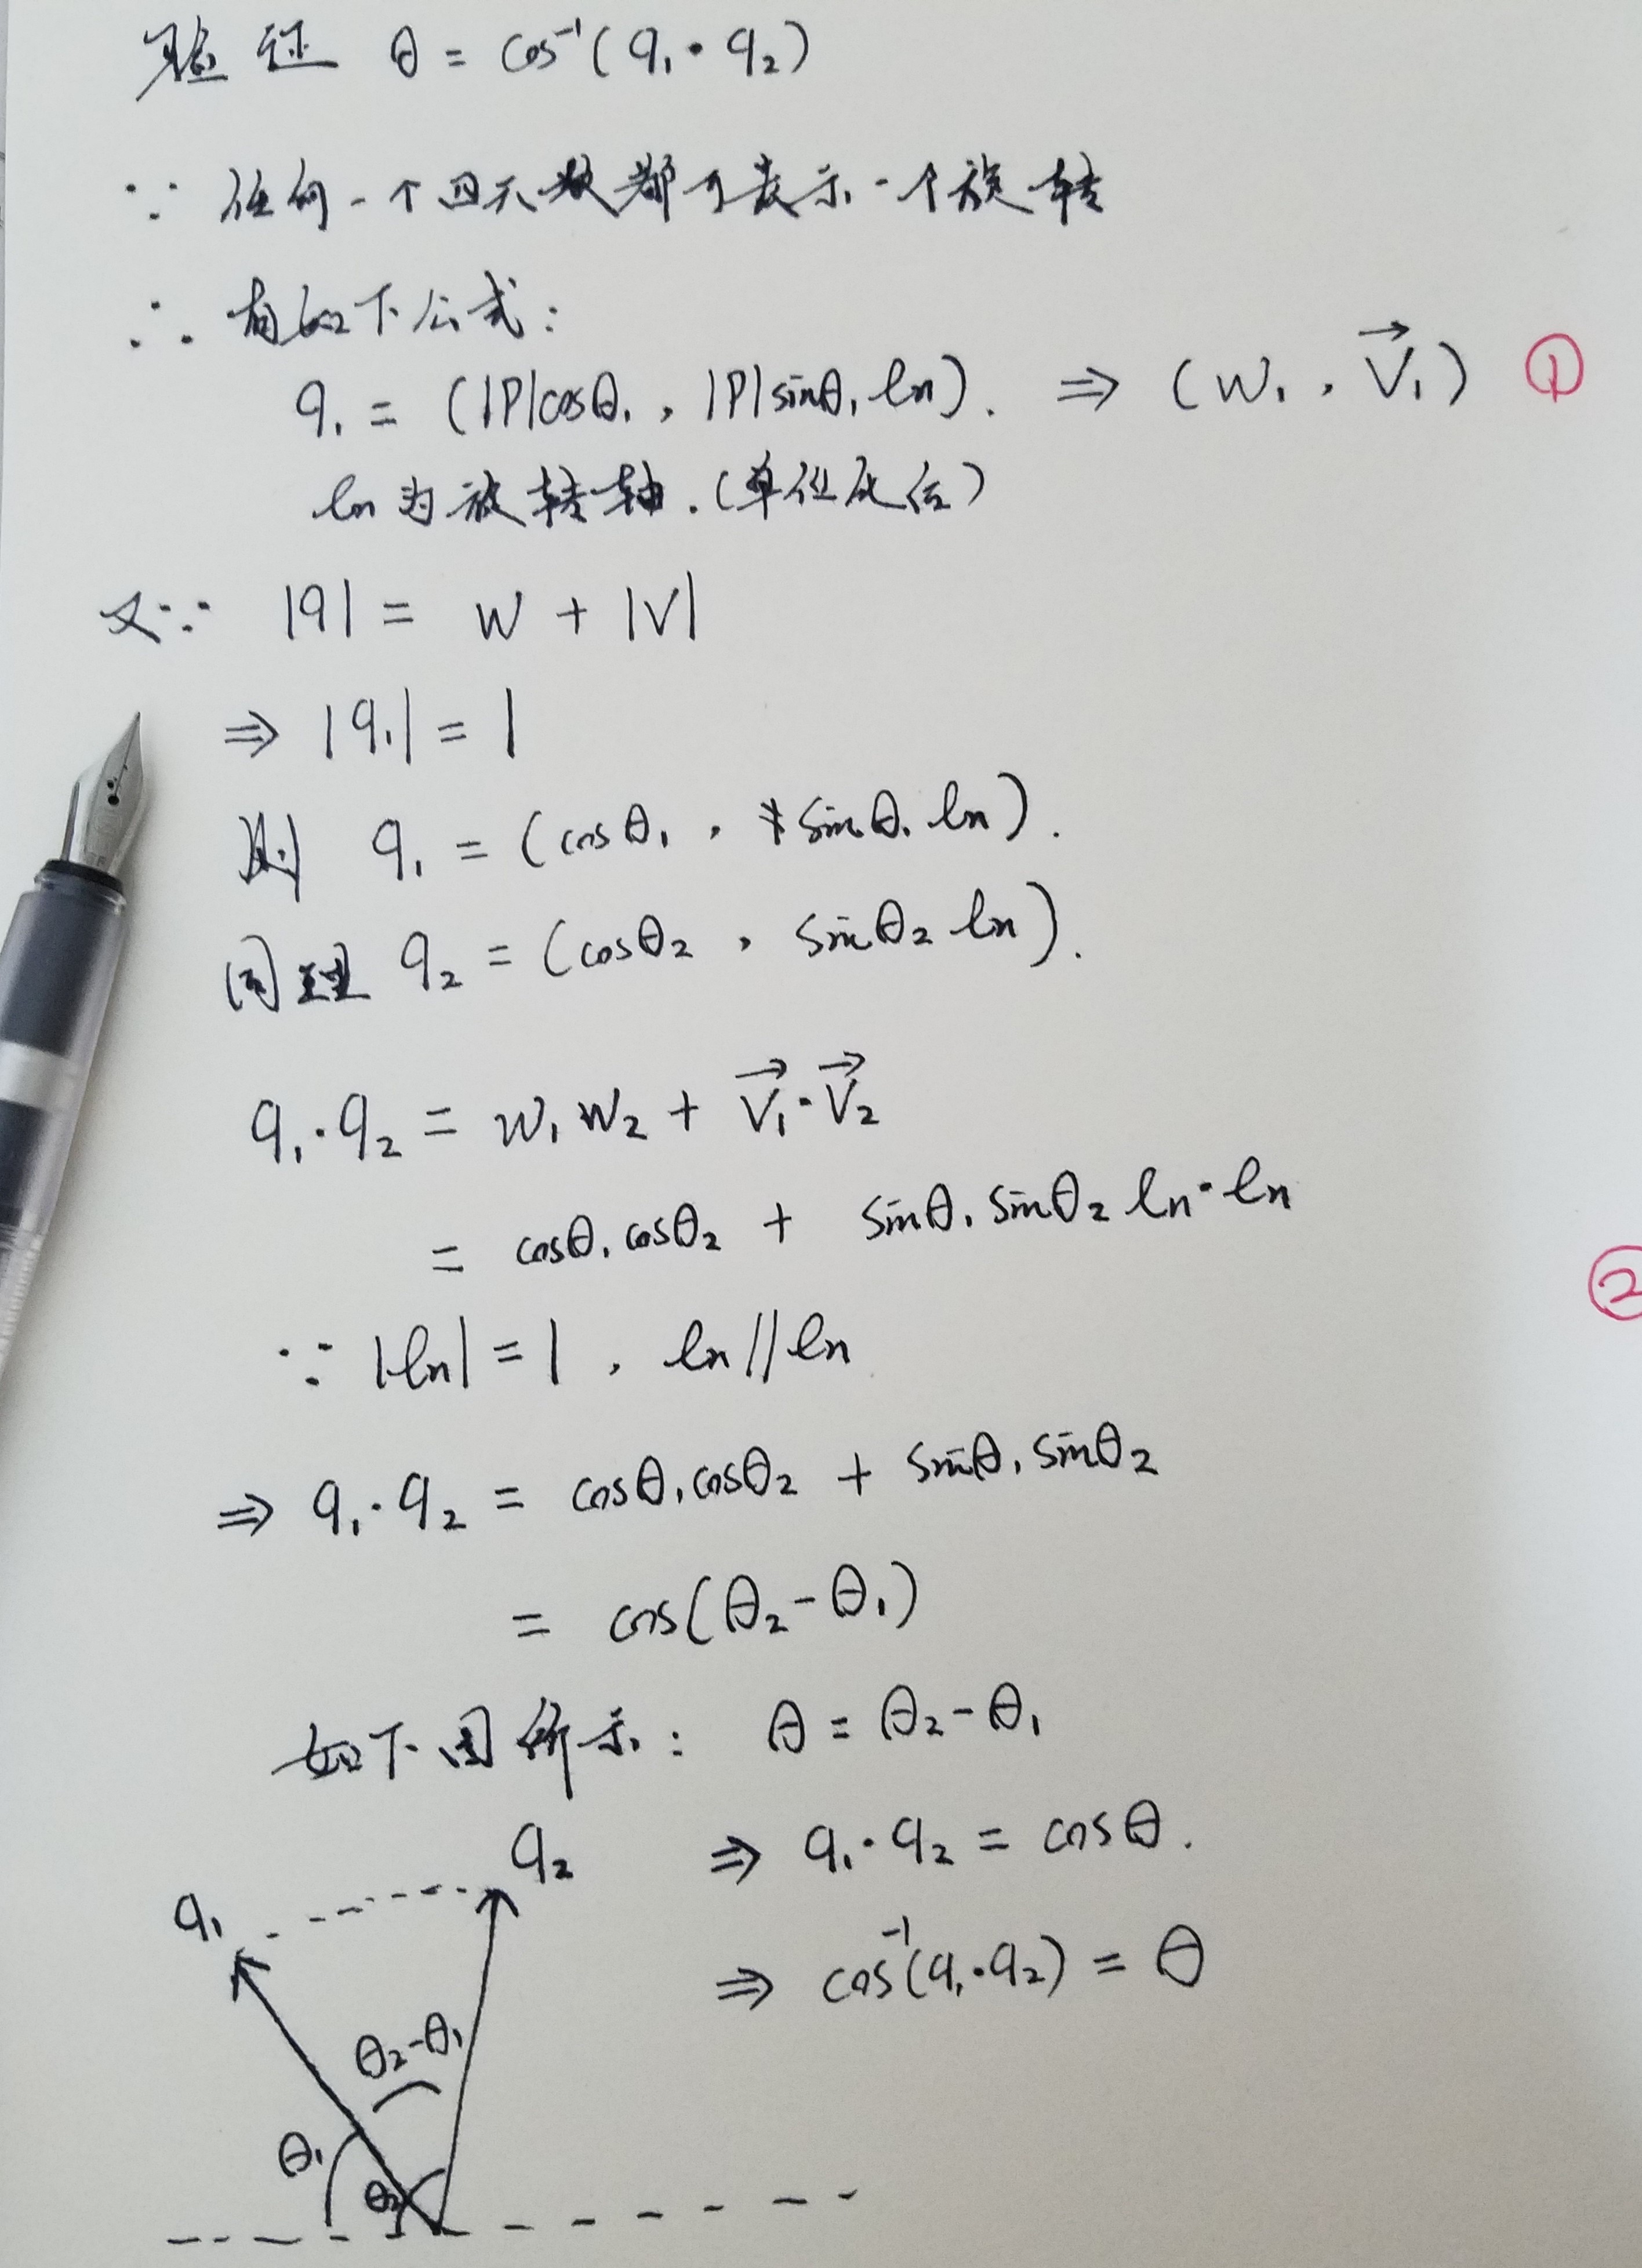 验证 θ = cos⁻¹(q₁·q₂)
∵ 任何一个四元数都可表示一个旋转
∴ 有如下公式:
q₁ = (|P|cosθ₁, |P|sinθ₁ ln). ⇒ (w₁, V₁→) ①
ln为旋转轴.(单位化后)
又∵ |q| = w + |V|
⇒ |q₁| = 1
则 q₁ = (cosθ₁, sinθ₁ ln).
同理 q₂ = (cosθ₂, sinθ₂ ln).
q₁·q₂ = w₁w₂ + V₁→·V₂→
= cosθ₁cosθ₂ + sinθ₁sinθ₂ ln·ln
②
∵ |ln| = 1, ln // ln
⇒ q₁·q₂ = cosθ₁cosθ₂ + sinθ₁sinθ₂
= cos(θ₂-θ₁)
如下图所示: θ = θ₂-θ₁
⇒ q₁·q₂ = cosθ.
⇒ cos⁻¹(q₁·q₂) = θ
q₂
q₁
θ₂-θ₁
θ₁
θ₂